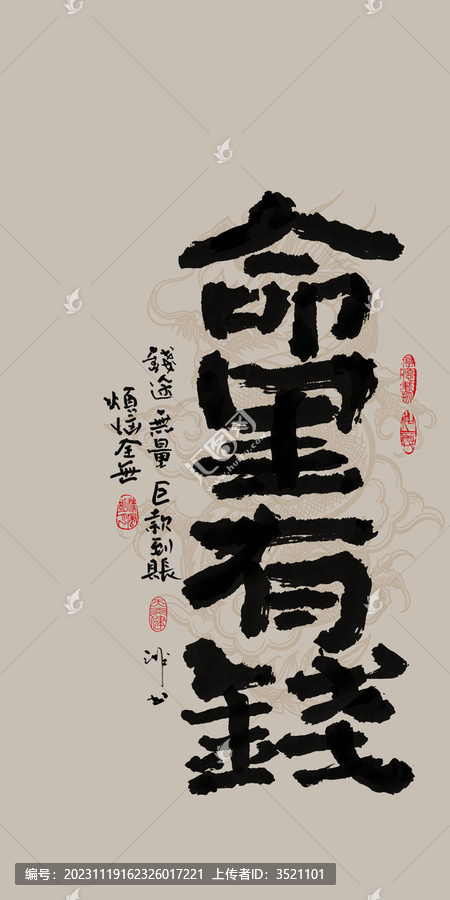 命里有錢
錢途無量 巨款到賬
煩惱全無
编号：20231119162326017221 上传者ID：3521101